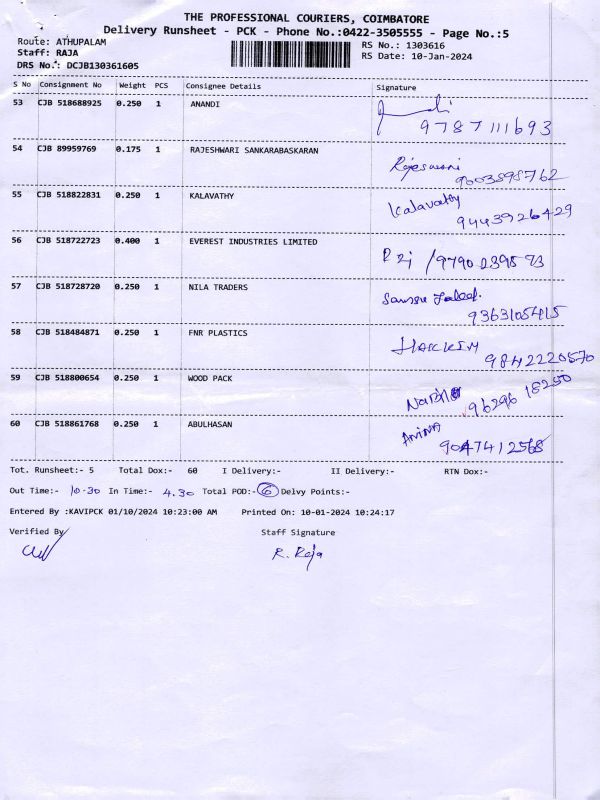 THE PROFESSIONAL COURIERS, COIMBATORE
Delivery Runsheet - PCK - Phone No.:0422-3505555 - Page No.:5
Route: ATHUPALAM
Staff: RAJA
DRS No.: DCJB130361605
RS No.: 1303616
RS Date: 10-Jan-2024
S No Consignment No Weight PCS Consignee Details Signature
53 CJB 518688925 0.250 1 ANANDI
9787111693
54 CJB 89959769 0.175 1 RAJESHWARI SANKARABASKARAN
Rajeswari
9003898762
55 CJB 518822831 0.250 1 KALAVATHY Kalavathy
9443926429
56 CJB 518722723 0.400 1 EVEREST INDUSTRIES LIMITED
/9790239893
57 CJB 518728720 0.250 1 NILA TRADERS
9363105415
58 CJB 518484871 0.250 1 FNR PLASTICS
9842220570
59 CJB 518800654 0.250 1 WOOD PACK
96296 18250
60 CJB 518861768 0.250 1 ABULHASAN
9047412568
Tot. Runsheet:- 5 Total Dox:- 60 I Delivery:- II Delivery:- RTN Dox:-
Out Time:- 10-30 In Time:- 4.30 Total POD:- 6 Delvy Points:-
Entered By :KAVIPCK 01/10/2024 10:23:00 AM Printed On: 10-01-2024 10:24:17
Verified By Staff Signature
R. Raja